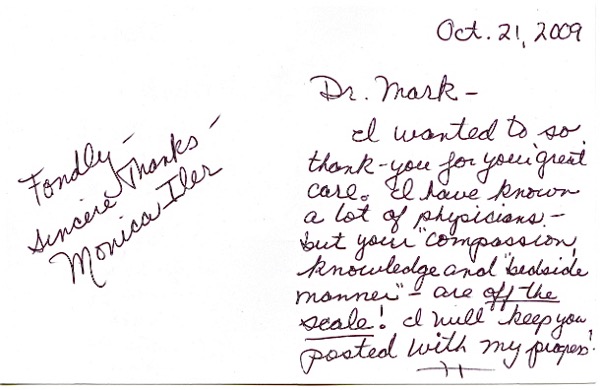 Oct. 21, 2009
Dr. Mark -
I wanted to so
thank-you for your great
care. I have known
a lot of physicians -
but your "compassion,
knowledge and "bedside
manner" - are off the
scale! I will keep you
posted with my progress!
Fondly -
Sincere Thanks -
Monica Iler